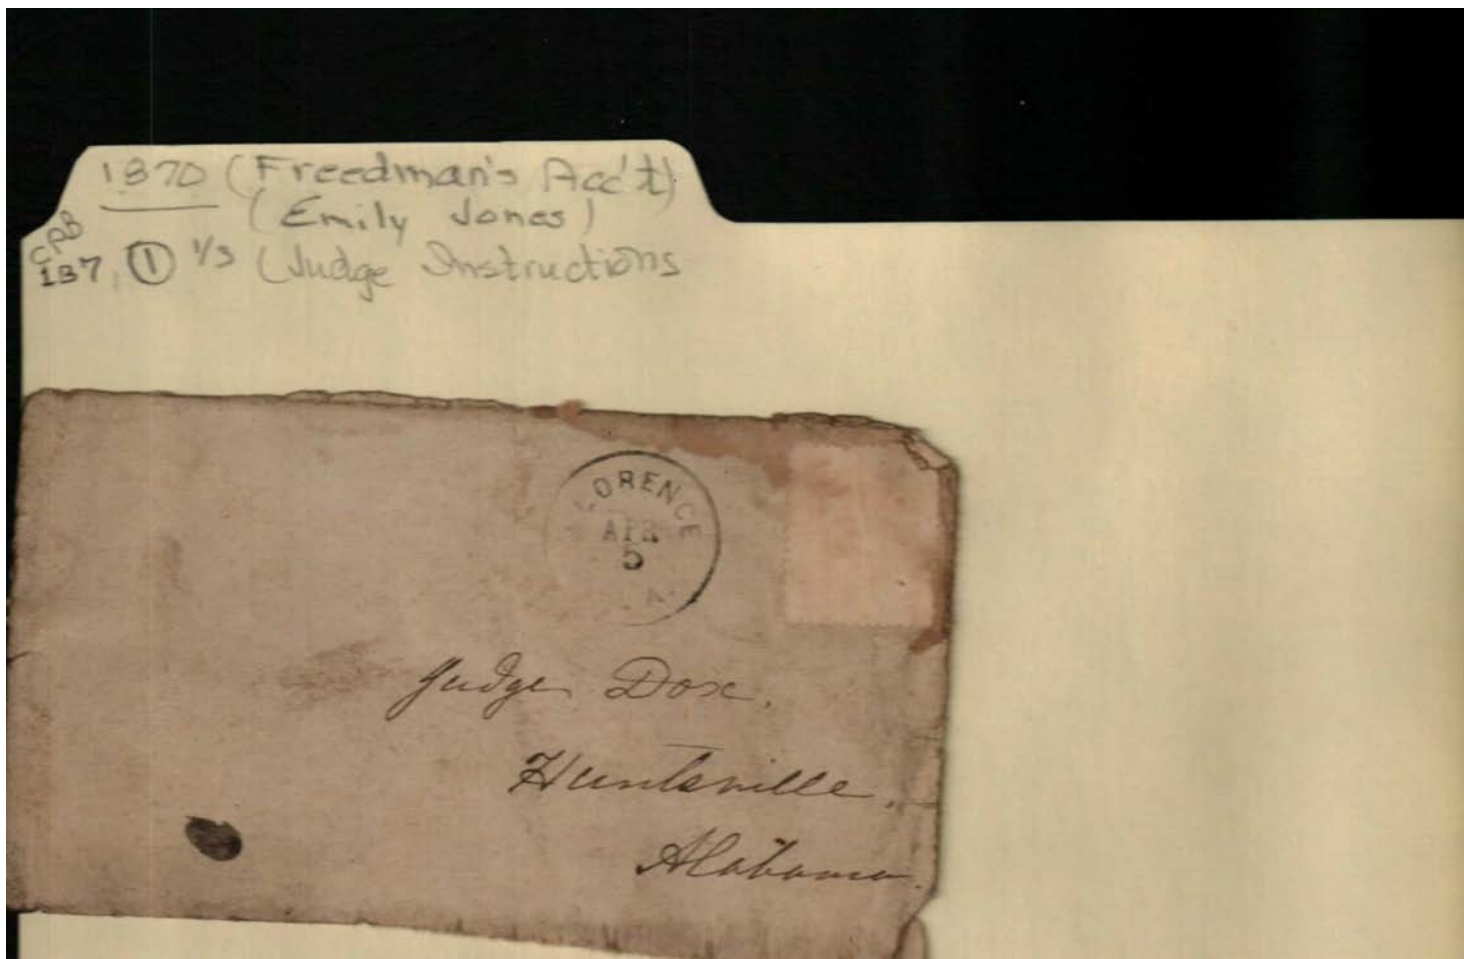 1870 (Freedman's Acc't)
(Emily Jones)
CPB
137, ① 1/3 (Judge Instructions
LORENCE
APR
5
A.
Judge Dox.
Huntsville,
Alabama.